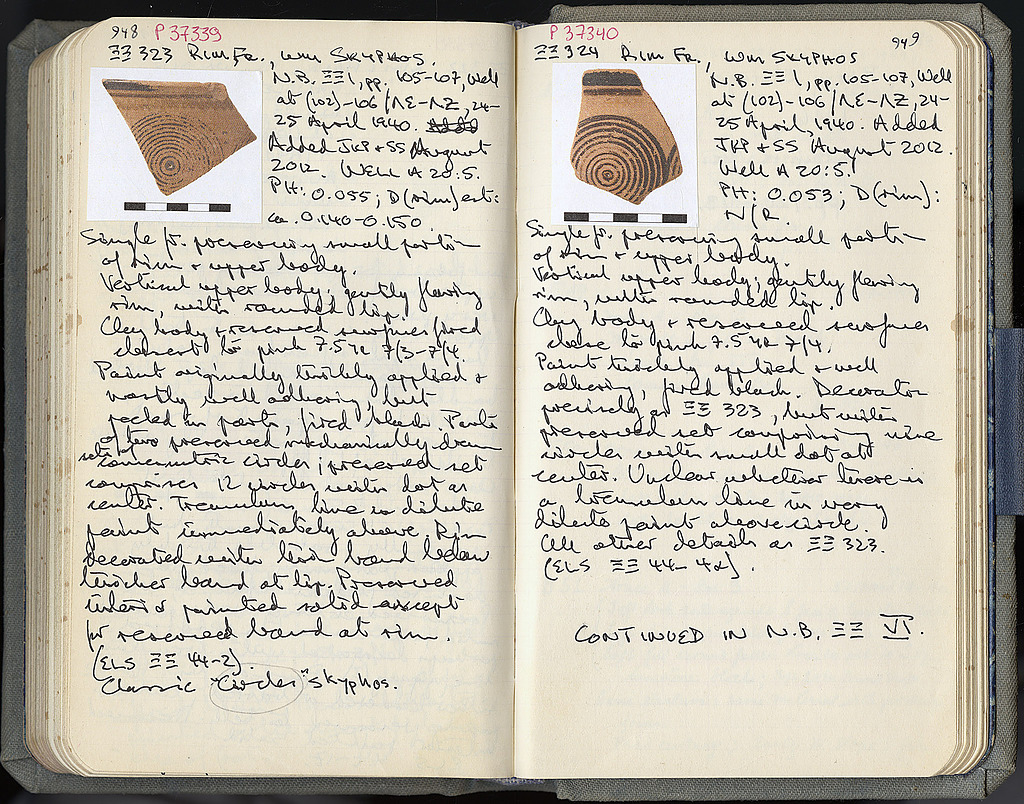 948 P 37339
ΞΞ 323 Rim Fr., WM SKYPHOS.
N.B. ΞΞ 1, pp. 105-107, Well
at (102)-106/ΛE-ΛZ, 24-
25 April 1940.
Added JKP + SS August
2012. WELL A 20:5.
PH: 0.055; D (rim) est:
ca. 0.140-0.150.
Single fr. preserving small portion
of rim + upper body.
Vertical upper body; gently flaring
rim, with rounded lip.
Clay body + reserved surfaces fired
closest to pink 7.5YR 7/3-7/4.
Paint originally thickly applied +
mostly well adhering, but
peeled in parts, fired black. Parts
of two preserved mechanically drawn
sets concentric circles; preserved set
comprises 12 circles with dot at
center. Tremulous line in dilute
paint immediately above. Rim
decorated with thin band below
thicker band at lip. Preserved
interior painted solid except
for reserved band at rim.
(ELS ΞΞ 44-2).
Classic "Circles" skyphos.
P 37340 949
ΞΞ 324 Rim Fr., WM SKYPHOS
N.B. ΞΞ 1, pp. 105-107, Well
at (102)-106/ΛE-ΛZ, 24-
25 April, 1940. Added
JKP + SS August 2012.
Well A 20:5.
PH: 0.053; D (rim):
N/R.
Single fr. preserving small portion
of rim + upper body.
Vertical upper body; gently flaring
rim, with rounded lip.
Clay body + reserved surfaces
close to pink 7.5YR 7/4.
Paint thickly applied + well
adhering, fired black. Decoration
precisely as ΞΞ 323, but with
preserved set comprising nine
circles with small dot at
center. Unclear whether there is
a tremulous line in very
dilute paint above circle.
All other details as ΞΞ 323.
(ELS ΞΞ 44-42).
CONTINUED IN N.B. ΞΞ VI.